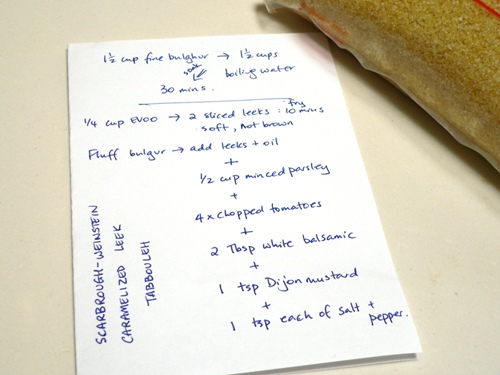 1½ cup fine bulghur → 1½ cups
soak boiling water
30 mins.
¼ cup EVOO → 2 sliced leeks : fry 10 mins
soft, not brown
Fluff bulgur → add leeks + oil
+
½ cup minced parsley
+
4 x chopped tomatoes
+
2 Tbsp white balsamic
+
1 tsp Dijon mustard
+
1 tsp each of salt + pepper.
SCARBROUGH-WEINSTEIN
CARAMELIZED LEEK
TABBOULEH